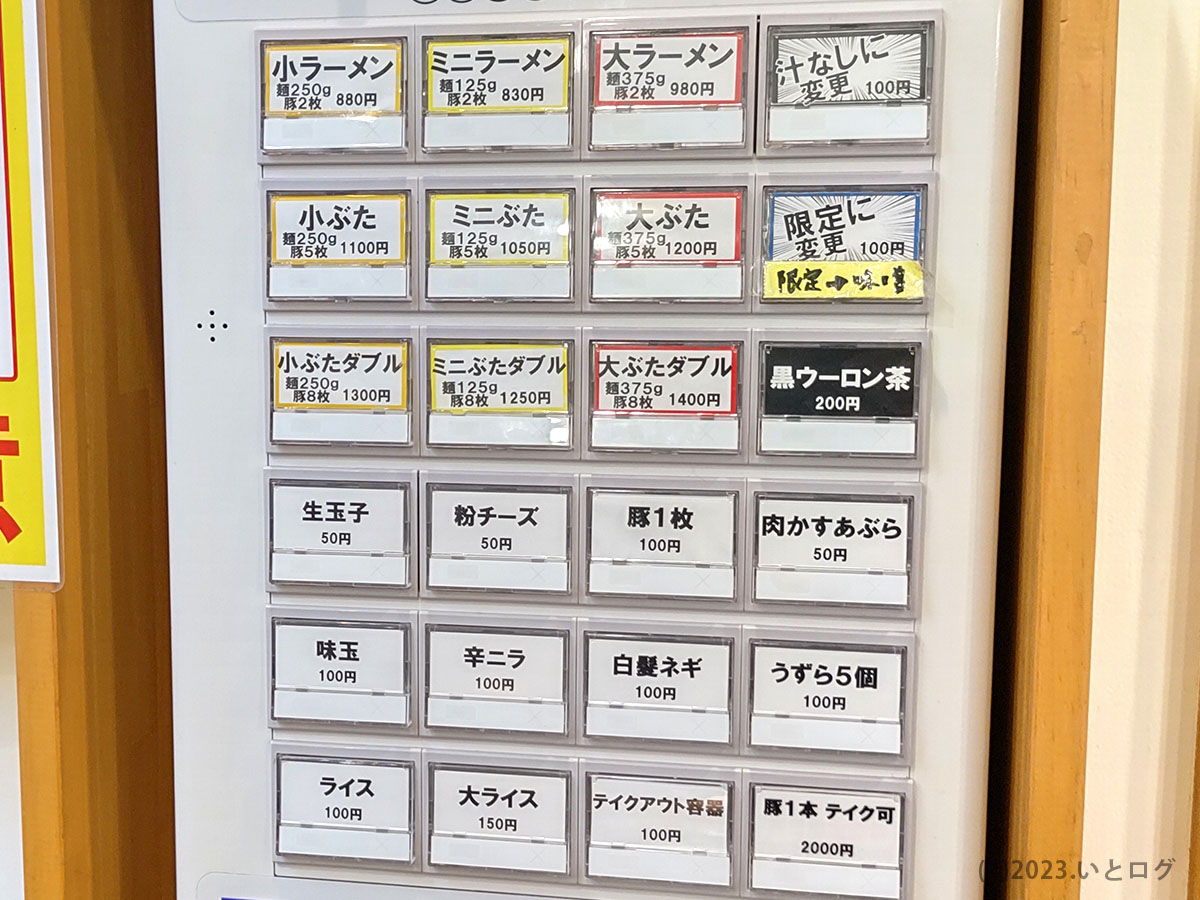 小ラーメン
麺250g
豚2枚 880円
ミニラーメン
麺125g
豚2枚 830円
大ラーメン
麺375g
豚2枚 980円
汁なしに
変更 100円
小ぶた
麺250g
豚5枚 1100円
ミニぶた
麺125g
豚5枚 1050円
大ぶた
麺375g
豚5枚 1200円
限定に
変更 100円
限定→味噌
小ぶたダブル
麺250g
豚8枚 1300円
ミニぶたダブル
麺125g
豚8枚 1250円
大ぶたダブル
麺375g
豚8枚 1400円
黒ウーロン茶
200円
生玉子
50円
粉チーズ
50円
豚1枚
100円
肉かすあぶら
50円
味玉
100円
辛ニラ
100円
白髪ネギ
100円
うずら5個
100円
ライス
100円
大ライス
150円
テイクアウト容器
100円
豚1本 テイク可
2000円
(c)2023.いとログ